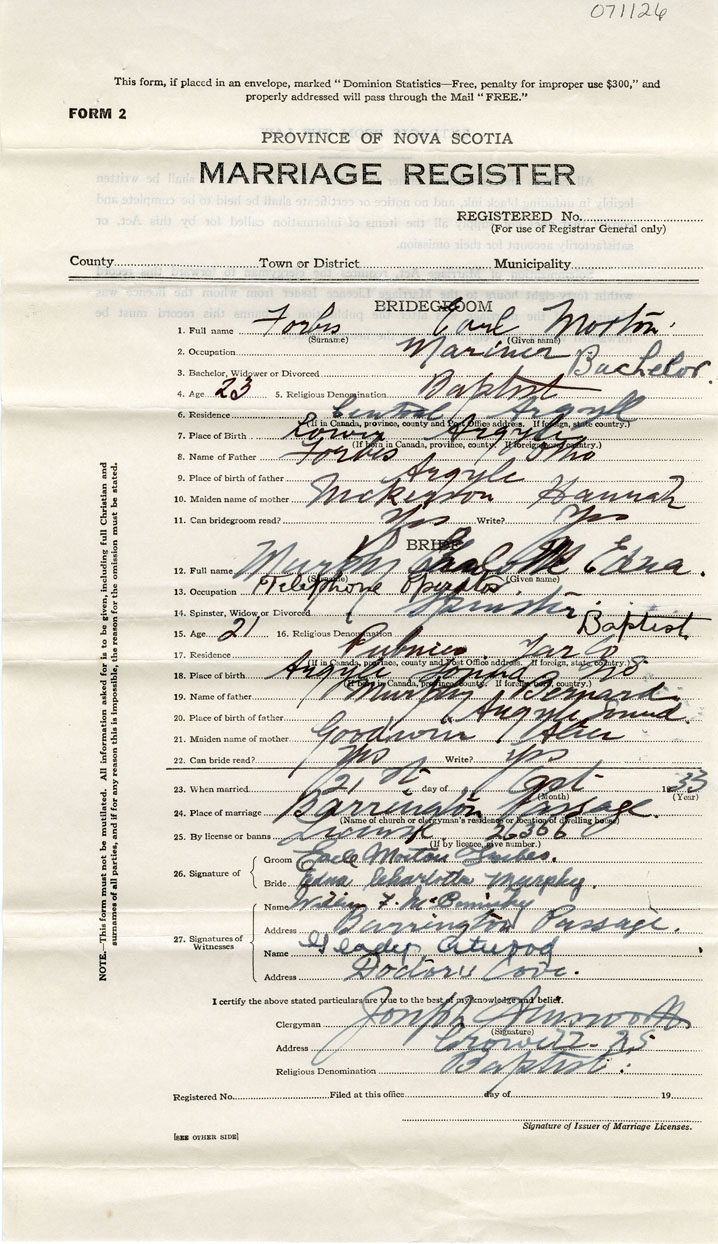 071126
This form, if placed in an envelope, marked "Dominion Statistics—Free, penalty for improper use $300," and
properly addressed will pass through the Mail "FREE."
FORM 2
PROVINCE OF NOVA SCOTIA
MARRIAGE REGISTER
REGISTERED No.
(For use of Registrar General only)
County Town or District Municipality
BRIDEGROOM
1. Full name Forbes Earl Morton
(Surname) (Given name)
2. Occupation Mariner
3. Bachelor, Widower or Divorced Bachelor
4. Age 23 5. Religious Denomination Baptist
6. Residence Central Argyle
(If in Canada, province, county and Post Office address. If foreign, state country.)
7. Place of Birth Lower Argyle
(If born in Canada, province, county. If foreign born, country.)
8. Name of Father Forbes
9. Place of birth of father Argyle
10. Maiden name of mother Hannah
11. Can bridegroom read? Yes Write? Yes
BRIDE
12. Full name Murphy Edna
(Surname) (Given name)
13. Occupation Telephone Operator
14. Spinster, Widow or Divorced Spinster
15. Age 21 16. Religious Denomination Baptist
17. Residence Pubnico Yar
(If in Canada, province, county and Post Office address. If foreign, state country.)
18. Place of birth Argyle Sound NS
(If born in Canada, province, county. If foreign born, country.)
19. Name of father Murphy Bernard
20. Place of birth of father Argyle Sound
21. Maiden name of mother Goodwin
22. Can bride read? Yes Write? yes
23. When married 21st day of Oct 1933
(Month) (Year)
24. Place of marriage Barrington Passage
(Name of church or clergyman's residence or location of dwelling house)
25. By license or banns License 2366
(If by licence, give number.)
26. Signature of Groom Earl Morton Forbes.
Bride Edna Charlotte Murphy.
27. Signatures of Witnesses
Name F.
Address Barrington Passage.
Name Gladys Atwood
Address Doctors Cove.
I certify the above stated particulars are true to the best of my knowledge and belief.
Clergyman Joseph
(Signature)
Address N.S.
Religious Denomination Baptist.
Registered No. Filed at this office day of 19
Signature of Issuer of Marriage Licenses.
[SEE OTHER SIDE]
NOTE.—This form must not be mutilated. All information asked for is to be given, including full Christian and
surnames of all parties, and if for any reason this is impossible, the reason for the omission must be stated.